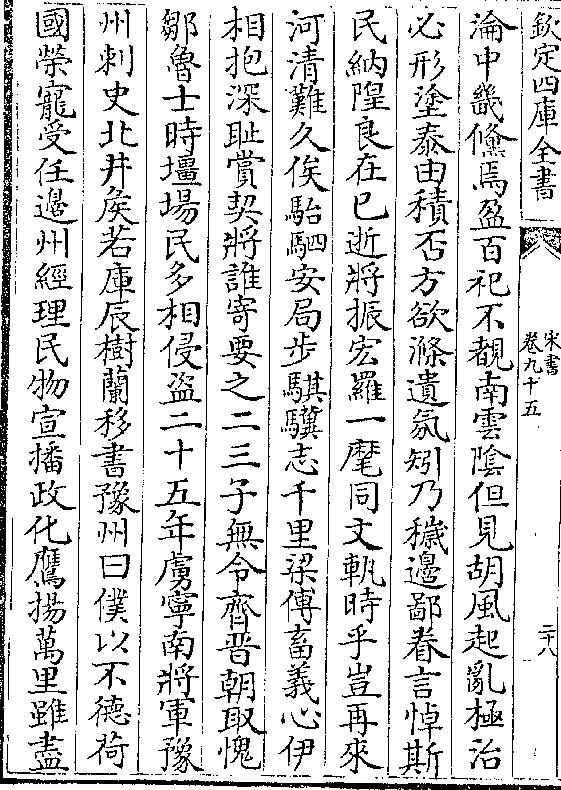 欽定四庫全書
宋書
卷九十五
二十八
淪中畿儵焉盈百祀不覩南雲陰但見胡風起亂極治
必形塗泰由積否方欲滌遺氛矧乃穢邊鄙眷言悼斯
民納隍良在已逝將振宏羅一麾同文軌時乎豈再來
河清難久俟駘駟安局步騏驥志千里梁傅畜義心伊
相抱深恥賞契將誰寄要之二三子無令齊晉朝取愧
鄒魯士時壃場民多相侵盜二十五年虜寧南將軍豫
州刺史北井矦若庫辰樹蘭移書豫州曰僕以不德荷
國榮寵受任邊州經理民物宣播政化鷹揚萬里雖盡